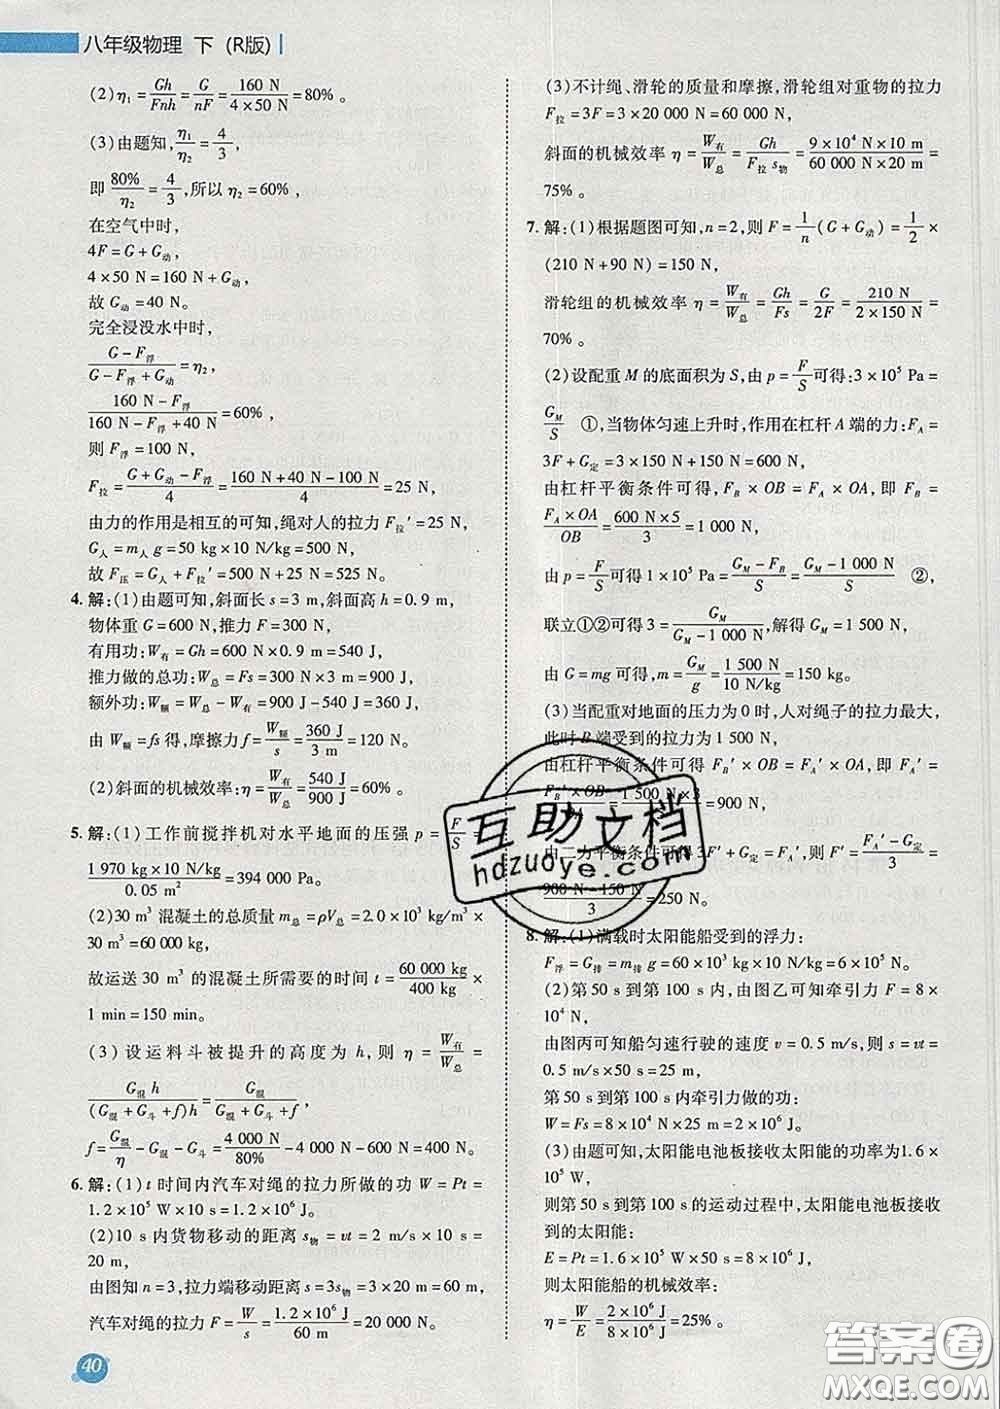 八年级物理 下 (R版)
(2) η₁ = Gh/Fnh = G/nF = 160 N/4×50 N = 80%。
(3) 由题知, η₁/η₂ = 4/3,
即 80%/η₂ = 4/3, 所以 η₂ = 60%,
在空气中时,
4F = G + G动,
4 × 50 N = 160 N + G动,
故 G动 = 40 N。
完全浸没水中时,
G - F浮/G - F浮 + G动 = η₂,
160 N - F浮/160 N - F浮 + 40 N = 60%,
则 F浮 = 100 N,
F拉 = G + G动 - F浮/4 = 160 N + 40 N - 100 N/4 = 25 N,
由力的作用是相互的可知,绳对人的拉力 F拉′ = 25 N,
G人 = m人 g = 50 kg × 10 N/kg = 500 N,
故 F压 = G人 + F拉′ = 500 N + 25 N = 525 N。
4. 解:(1)由题可知,斜面长 s = 3 m,斜面高 h = 0.9 m,
物体重 G = 600 N,推力 F = 300 N,
有用功: W有 = Gh = 600 N × 0.9 m = 540 J,
推力做的总功: W总 = Fs = 300 N × 3 m = 900 J,
额外功: W额 = W总 - W有 = 900 J - 540 J = 360 J,
由 W额 = fs 得,摩擦力 f = W额/s = 360 J/3 m = 120 N。
(2)斜面的机械效率: η = W有/W总 = 540 J/900 J = 60%。
5. 解:(1)工作前搅拌机对水平地面的压强 p = F/S =
1 970 kg × 10 N/kg/0.05 m² = 394 000 Pa。
(2)30 m³ 混凝土的总质量 m总 = ρV总 = 2.0 × 10³ kg/m³ ×
30 m³ = 60 000 kg,
故运送 30 m³ 的混凝土所需要的时间 t = 60 000 kg/400 kg ×
1 min = 150 min。
(3)设运料斗被提升的高度为 h,则 η = W有/W总 =
G混 h/(G混 + G斗 + f)h = G混/G混 + G斗 + f,
f = G混/η - G混 - G斗 = 4 000 N/80% - 4 000 N - 600 N = 400 N。
6. 解:(1) t 时间内汽车对绳的拉力所做的功 W = Pt =
1.2 × 10⁵ W × 10 s = 1.2 × 10⁶ J。
(2)10 s 内货物移动的距离 s物 = vt = 2 m/s × 10 s =
20 m,
由图知 n = 3,拉力端移动距离 s = 3s物 = 3 × 20 m = 60 m,
汽车对绳的拉力 F = W/s = 1.2 × 10⁶ J/60 m = 20 000 N。
40
(3)不计绳、滑轮的质量和摩擦,滑轮组对重物的拉力
F拉 = 3F = 3 × 20 000 N = 60 000 N,
斜面的机械效率 η = W有/W总 = Gh/F拉 s物 = 9 × 10⁴ N × 10 m/60 000 N × 20 m =
75%。
7. 解:(1)根据题图可知, n = 2, 则 F = 1/n (G + G动) = 1/2 ×
(210 N + 90 N) = 150 N,
滑轮组的机械效率 η = W有/W总 = Gh/Fs = G/2F = 210 N/2 × 150 N =
70%。
(2)设配重 M 的底面积为 S, 由 p = F/S 可得: 3 × 10⁵ Pa =
G_M/S ①,当物体匀速上升时,作用在杠杆 A 端的力: F_A =
3F + G定 = 3 × 150 N + 150 N = 600 N,
由杠杆平衡条件可得, F_B × OB = F_A × OA, 即 F_B =
F_A × OA/OB = 600 N × 5/3 = 1 000 N,
由 p = F/S 可得 1 × 10⁵ Pa = G_M - F_B/S = G_M - 1 000 N/S ②,
联立①②可得 3 = G_M/G_M - 1 000 N, 解得 G_M = 1 500 N,
由 G = mg 可得, m = G_M/g = 1 500 N/10 N/kg = 150 kg,
(3)当配重对地面的压力为 0 时,人对绳子的拉力最大,
此时 B 端受到的拉力为 1 500 N,
由杠杆平衡条件可得 F_B′ × OB = F_A′ × OA, 即 F_A′ =
F_B′ × OB/OA = 1 500 N × 3/5 = 900 N,
由二力平衡条件可得 3F′ + G定 = F_A′, 则 F′ = F_A′ - G定/3 =
900 N - 150 N/3 = 250 N。
8. 解:(1)满载时太阳能船受到的浮力:
F浮 = G排 = m排 g = 60 × 10³ kg × 10 N/kg = 6 × 10⁵ N。
(2)第 50 s 到第 100 s 内,由图乙可知牵引力 F = 8 ×
10⁴ N,
由图丙可知船匀速行驶的速度 v = 0.5 m/s,则 s = vt =
0.5 m/s × 50 s = 25 m,
第 50 s 到第 100 s 内牵引力做的功:
W = Fs = 8 × 10⁴ N × 25 m = 2 × 10⁶ J。
(3)由题可知,太阳能电池板接收太阳能的功率为 1.6 ×
10⁵ W,
则第 50 s 到第 100 s 的运动过程中,太阳能电池板接收
到的太阳能:
E = Pt = 1.6 × 10⁵ W × 50 s = 8 × 10⁶ J,
则太阳能船的机械效率:
η = W/E = 2 × 10⁶ J/8 × 10⁶ J = 25%。
互助文档
hdzuoye.com
答案圈
MXQE.COM